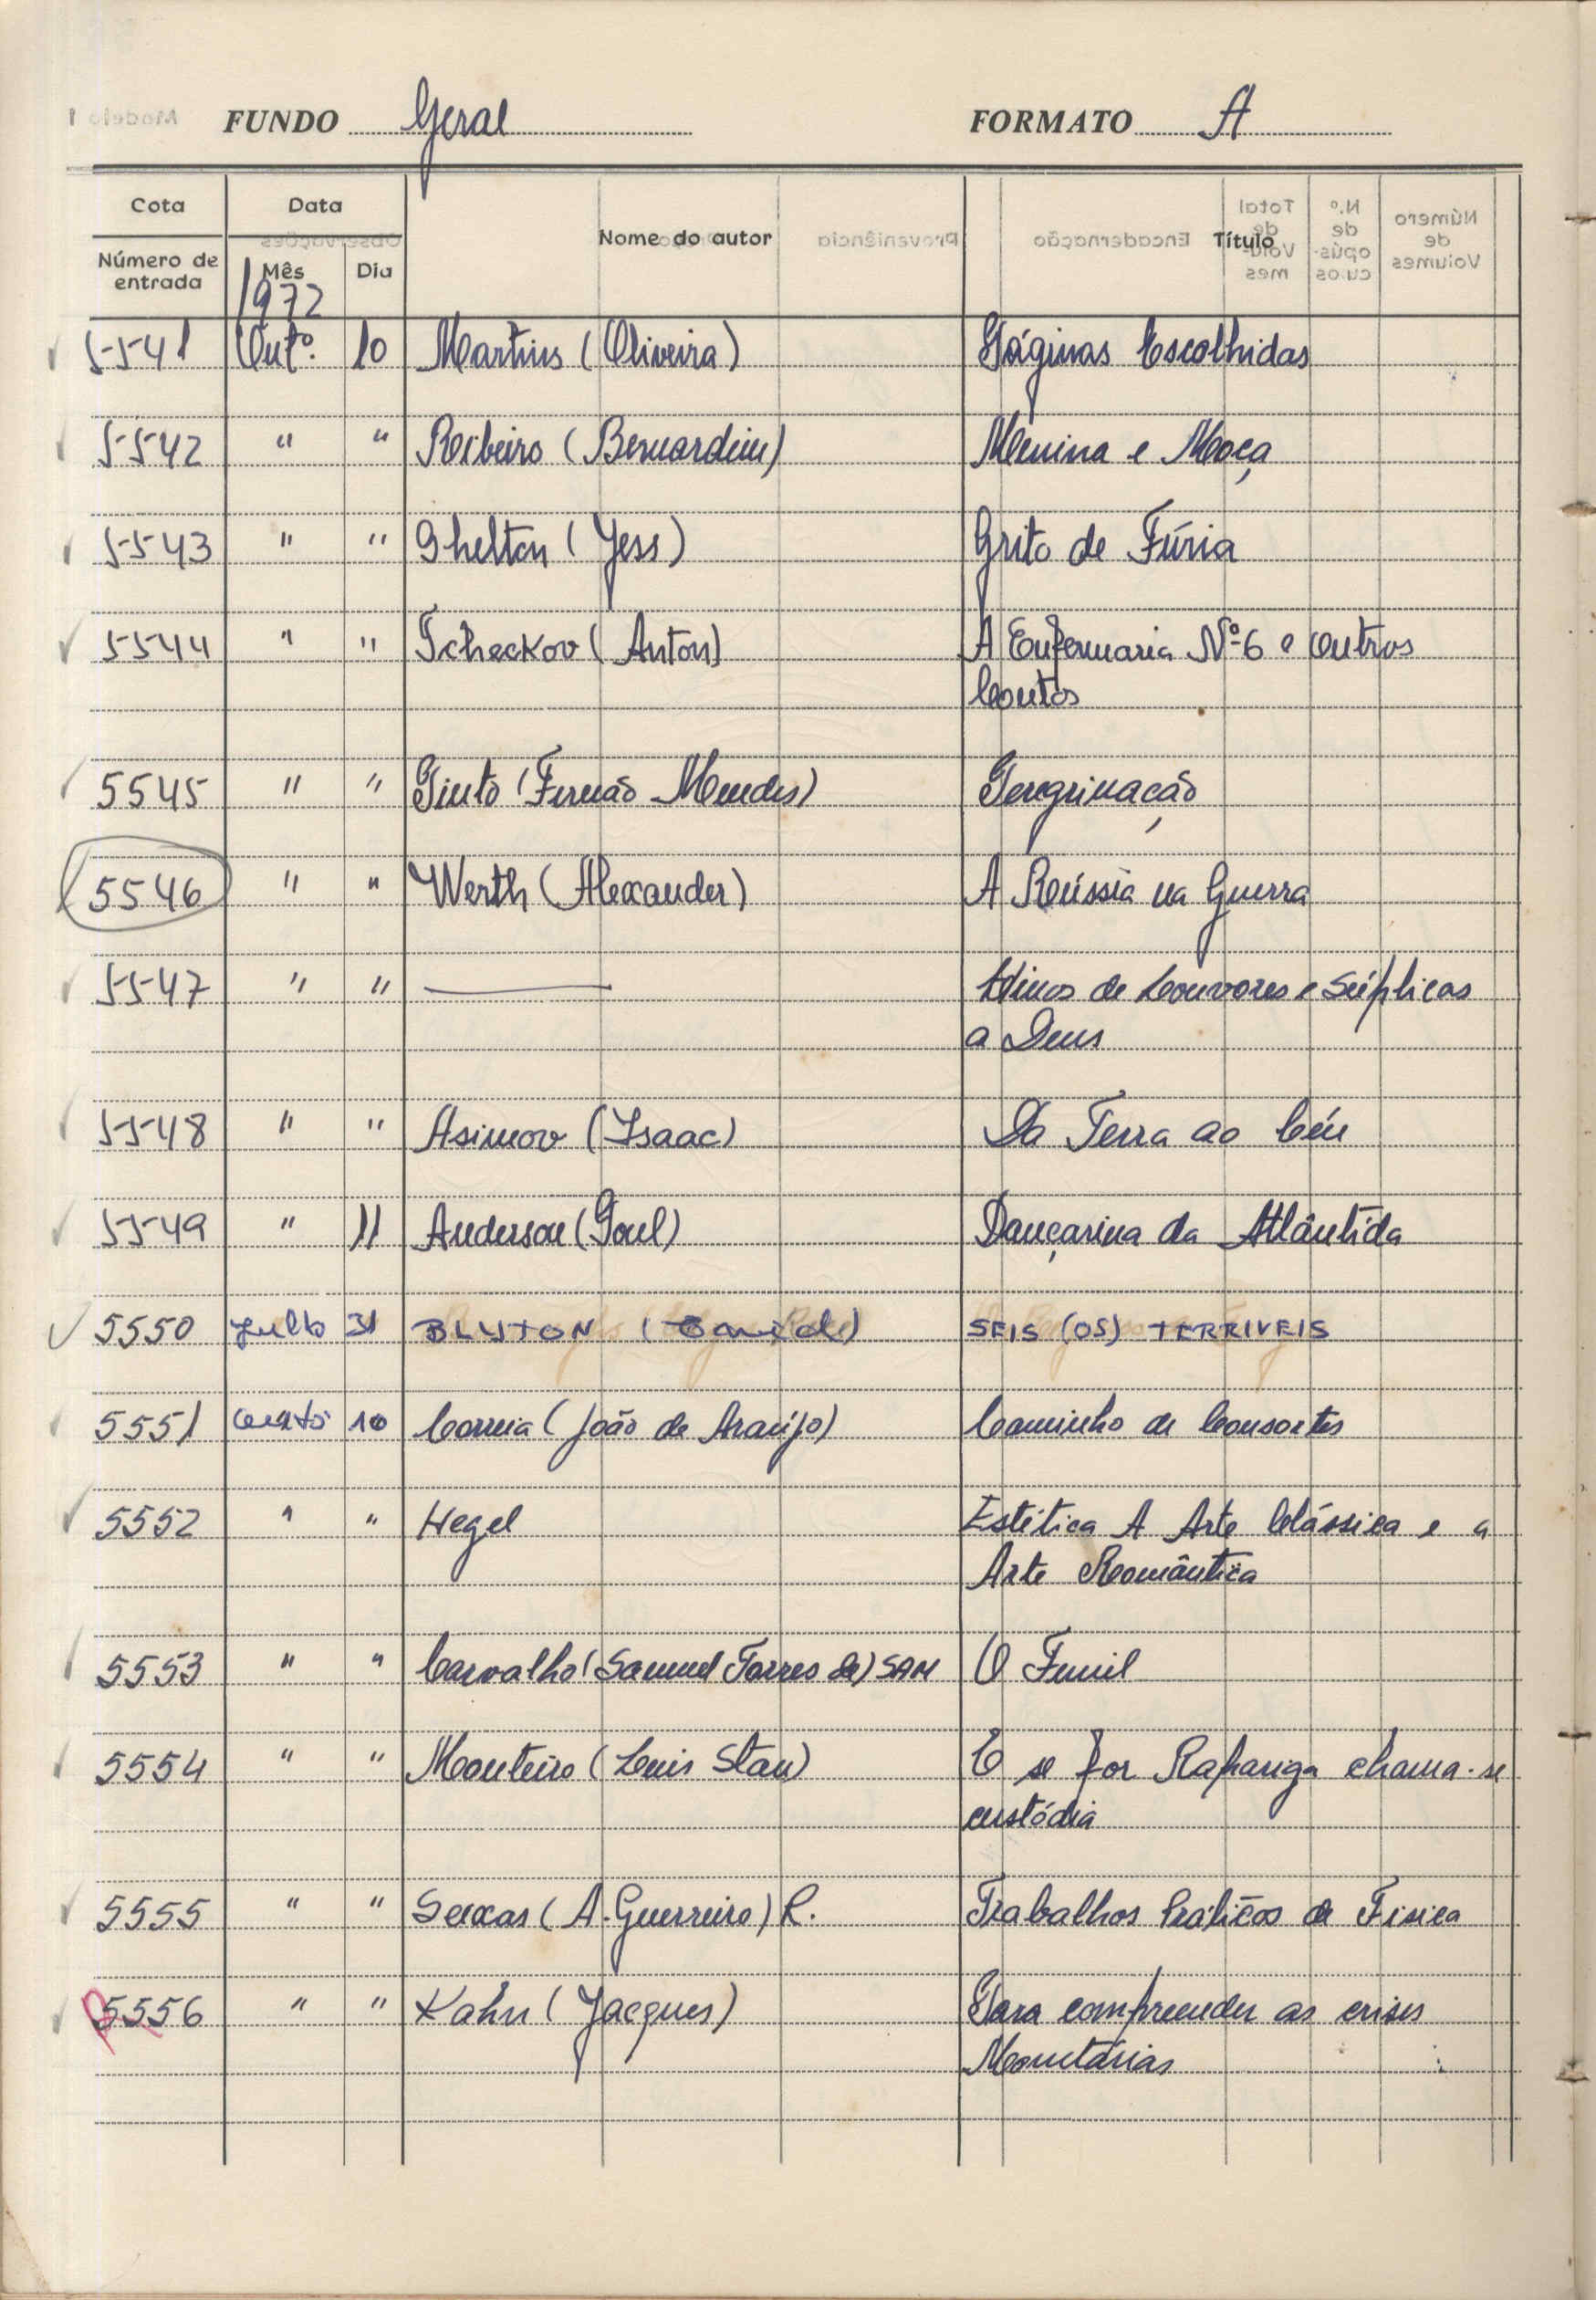 FUNDO Geral FORMATO A
Cota Data Nome do autor Título
Número de entrada Mês Dia
1972
5541 Outº. 10 Martins (Oliveira) Páginas Escolhidas
5542 " " Ribeiro (Bernardim) Menina e Moça
5543 " " Shelton (Jess) Grito de Fúria
5544 " " Tcheckov (Anton) A Enfermaria Nº 6 e outros
Contos
5545 " " Pinto (Fernão Mendes) Peregrinação
5546 " " Werth (Alexander) A Rússia na Guerra
5547 " " — Hinos de Louvores e Súplicas
a Deus
5548 " " Asimov (Isaac) Da Terra ao Céu
5549 " " Anderson (Poul) Dançarina da Atlântida
5550 Julho 31 BLYTON ( SEIS (OS) TERRIVEIS
5551 Outº 10 Correia (João de Araújo) Caminho de Consortes
5552 " " Hegel Estética A Arte Clássica e a
Arte Romântica
5553 " " Carvalho (Samuel Torres de) SAM O Funil
5554 " " Monteiro (Luis Stau) E se for Rapariga chama-se
custódia
5555 " " Seixas (A. Guerreiro) R. Trabalhos Práticos de Fisica
5556 " " Kahn (Jacques) Para compreender as crises
Monetárias